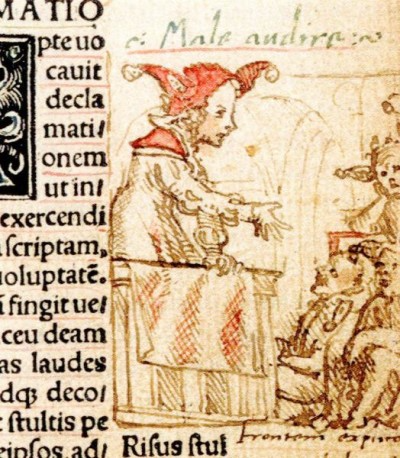 MATIO
pte uo
cauit
decla
mati/
onem
ut in/
exercendi
scriptam,
uoluptatē.
fingit ue/
ceu deam
as laudes
dqȝ deco/
stultis pe
eipsos, ad/
Male audire
Risus stul
frontem